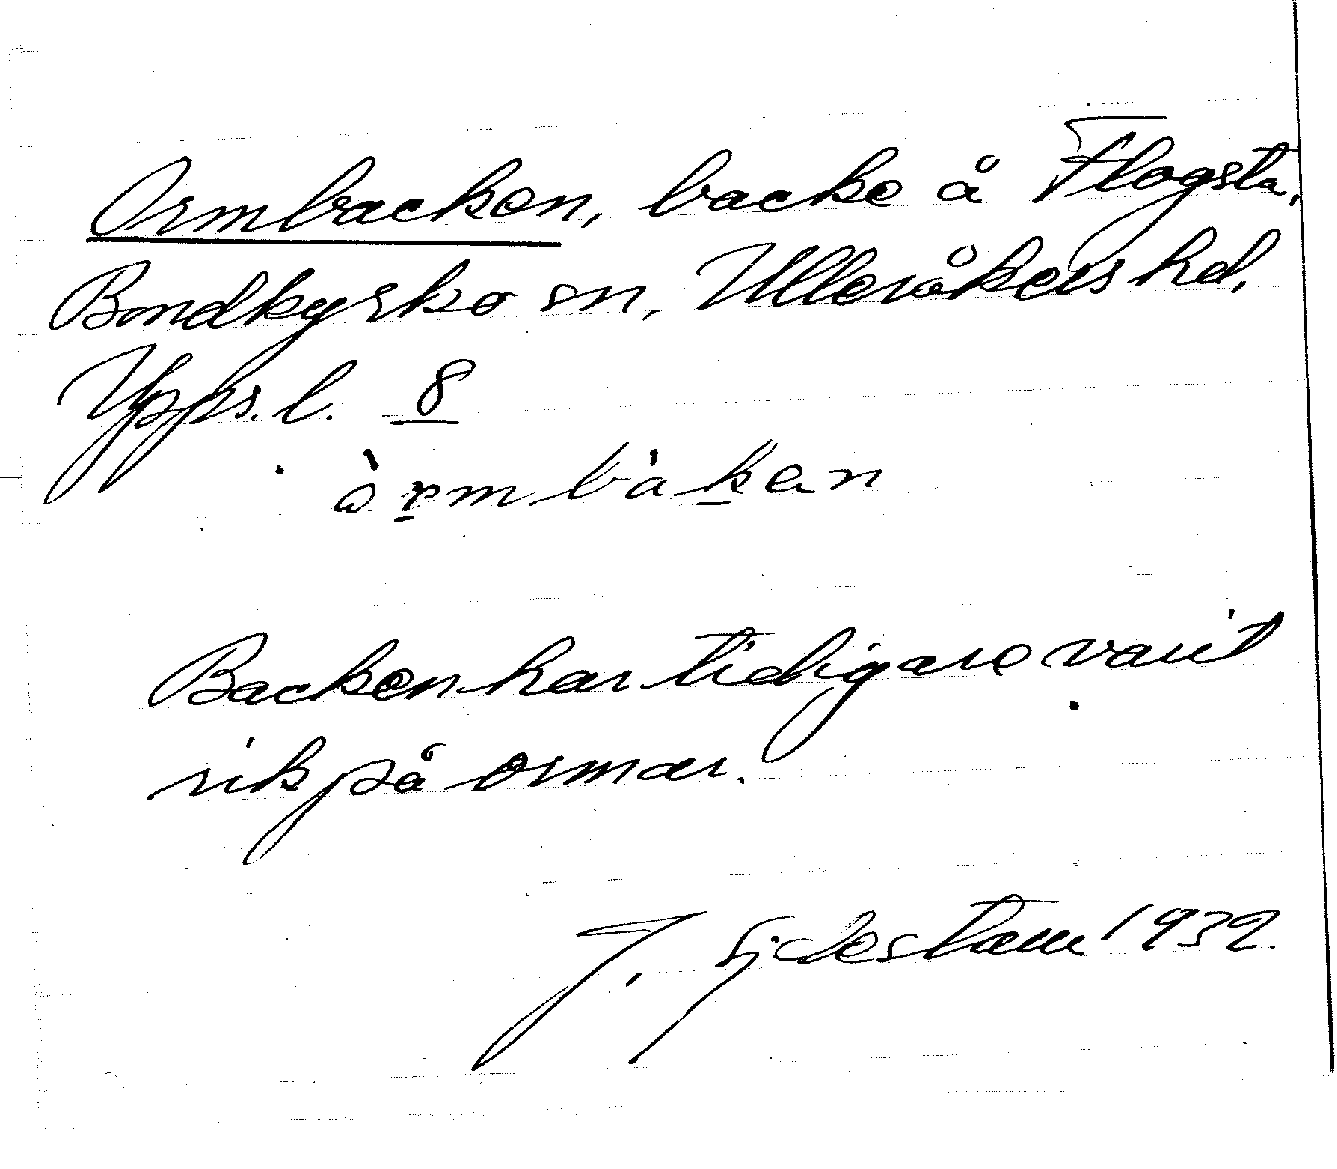 Ormbacken, backe å Flogsta,
Bondkyrko sn, Ulleråkers hd,
Upps. l. 8
òrmbàken
Backen har tidigare varit
rik på ormar.
J. Sjdestam 1932.